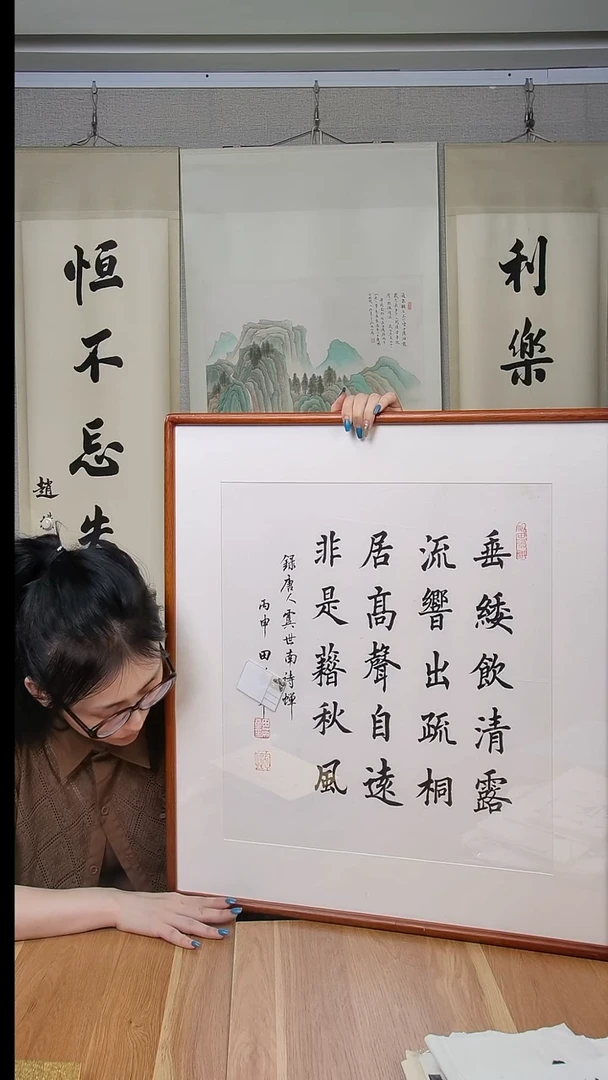 垂緌飲清露
流響出疏桐
居高聲自遠
非是藉秋風
錄唐人虞世南詩蟬
丙申 田
利樂
恒不忘先
趙